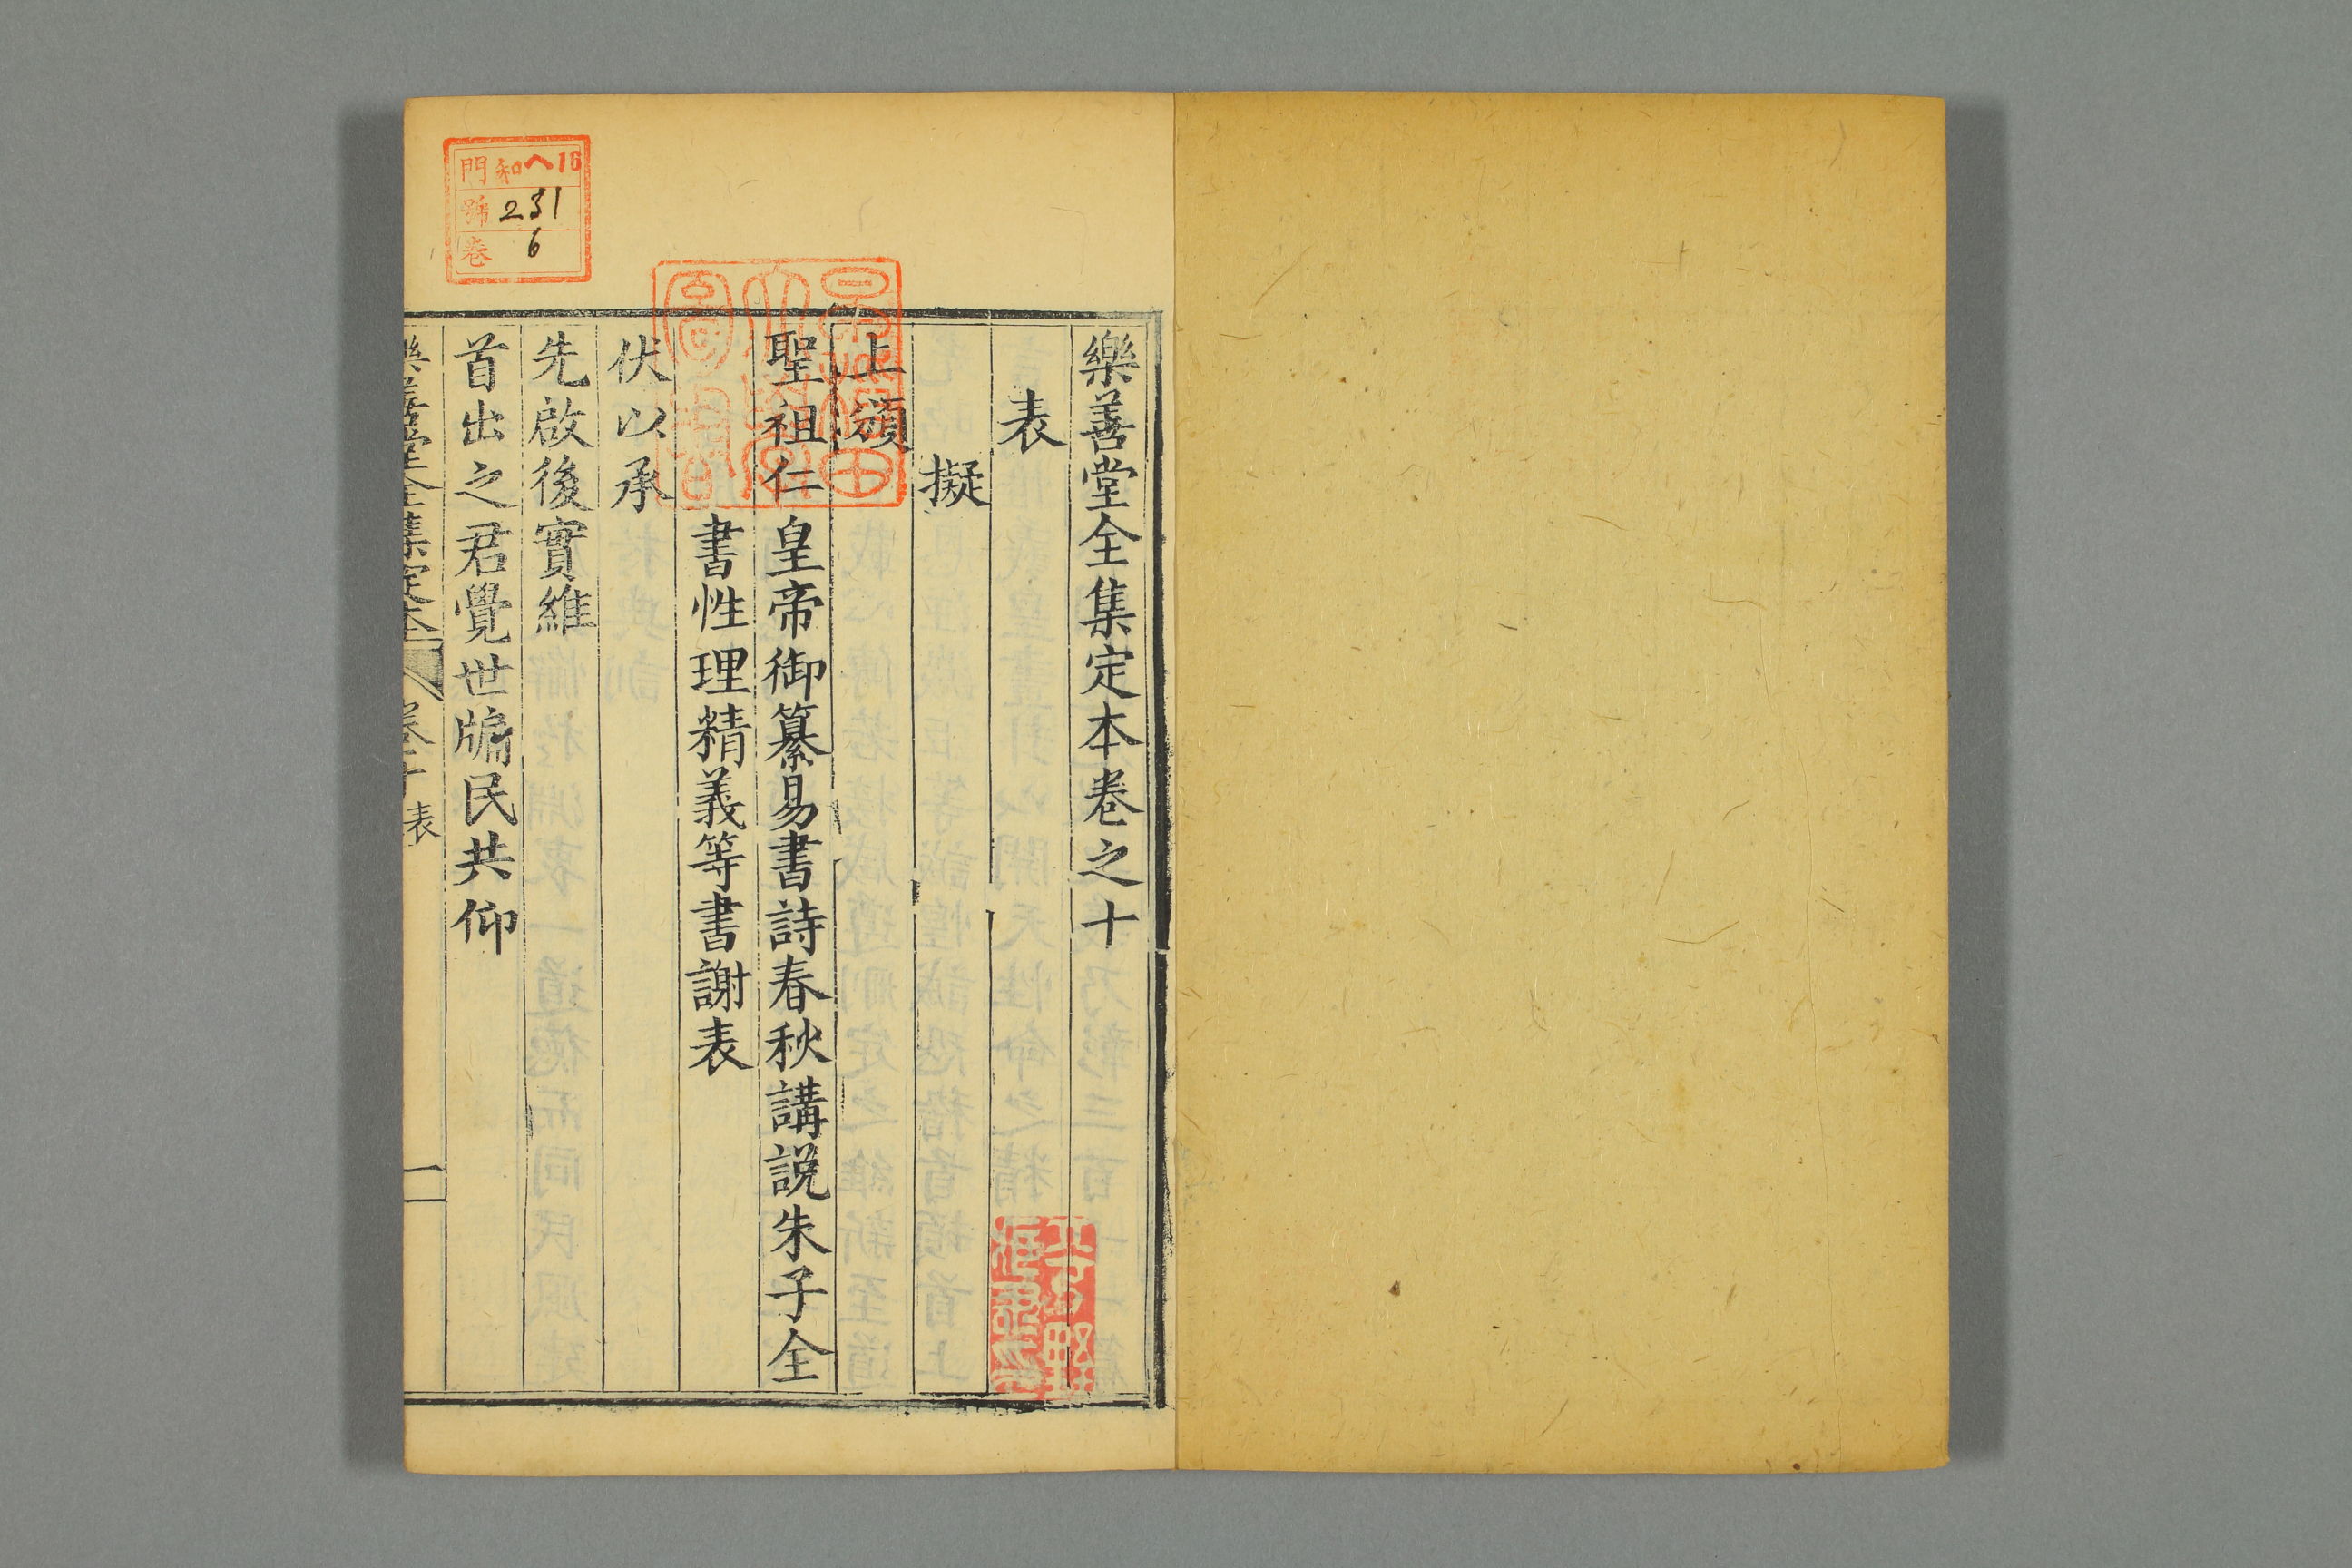 樂善堂全集定本卷之十
表
擬
上頒
聖祖仁皇帝御纂易書詩春秋講説朱子全
書性理精義等書謝表
伏以承
先啟後實維
首出之君覺世牖民共仰
樂善堂全集定本
卷十
表
一
門 和ヘ16
號 231
卷 6